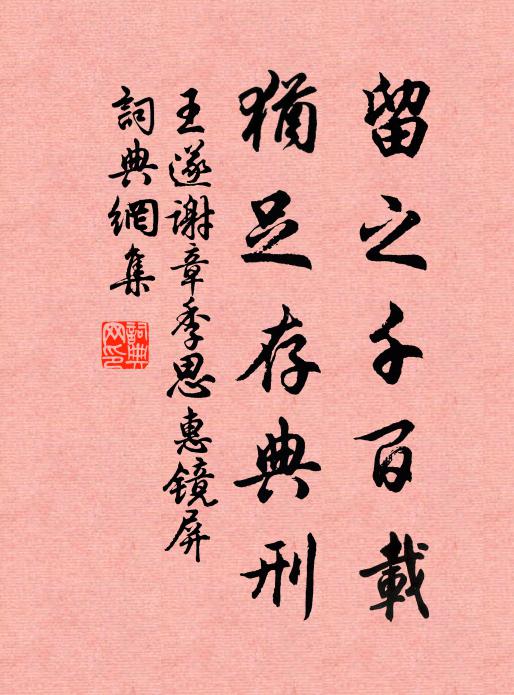 留之千百載
猶足存典刑
王遂謝章季思惠鏡屏
詞典網集
詞典网印